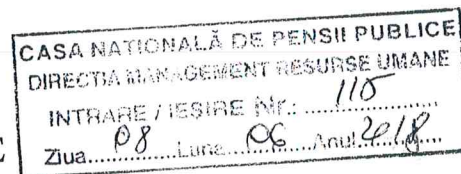 CASA NAȚIONALĂ DE PENSII PUBLICE
DIRECȚIA MANAGEMENT RESURSE UMANE
INTRARE / IEȘIRE Nr.: ....110.............
Ziua....08.....Luna....06....Anul.2018....
E